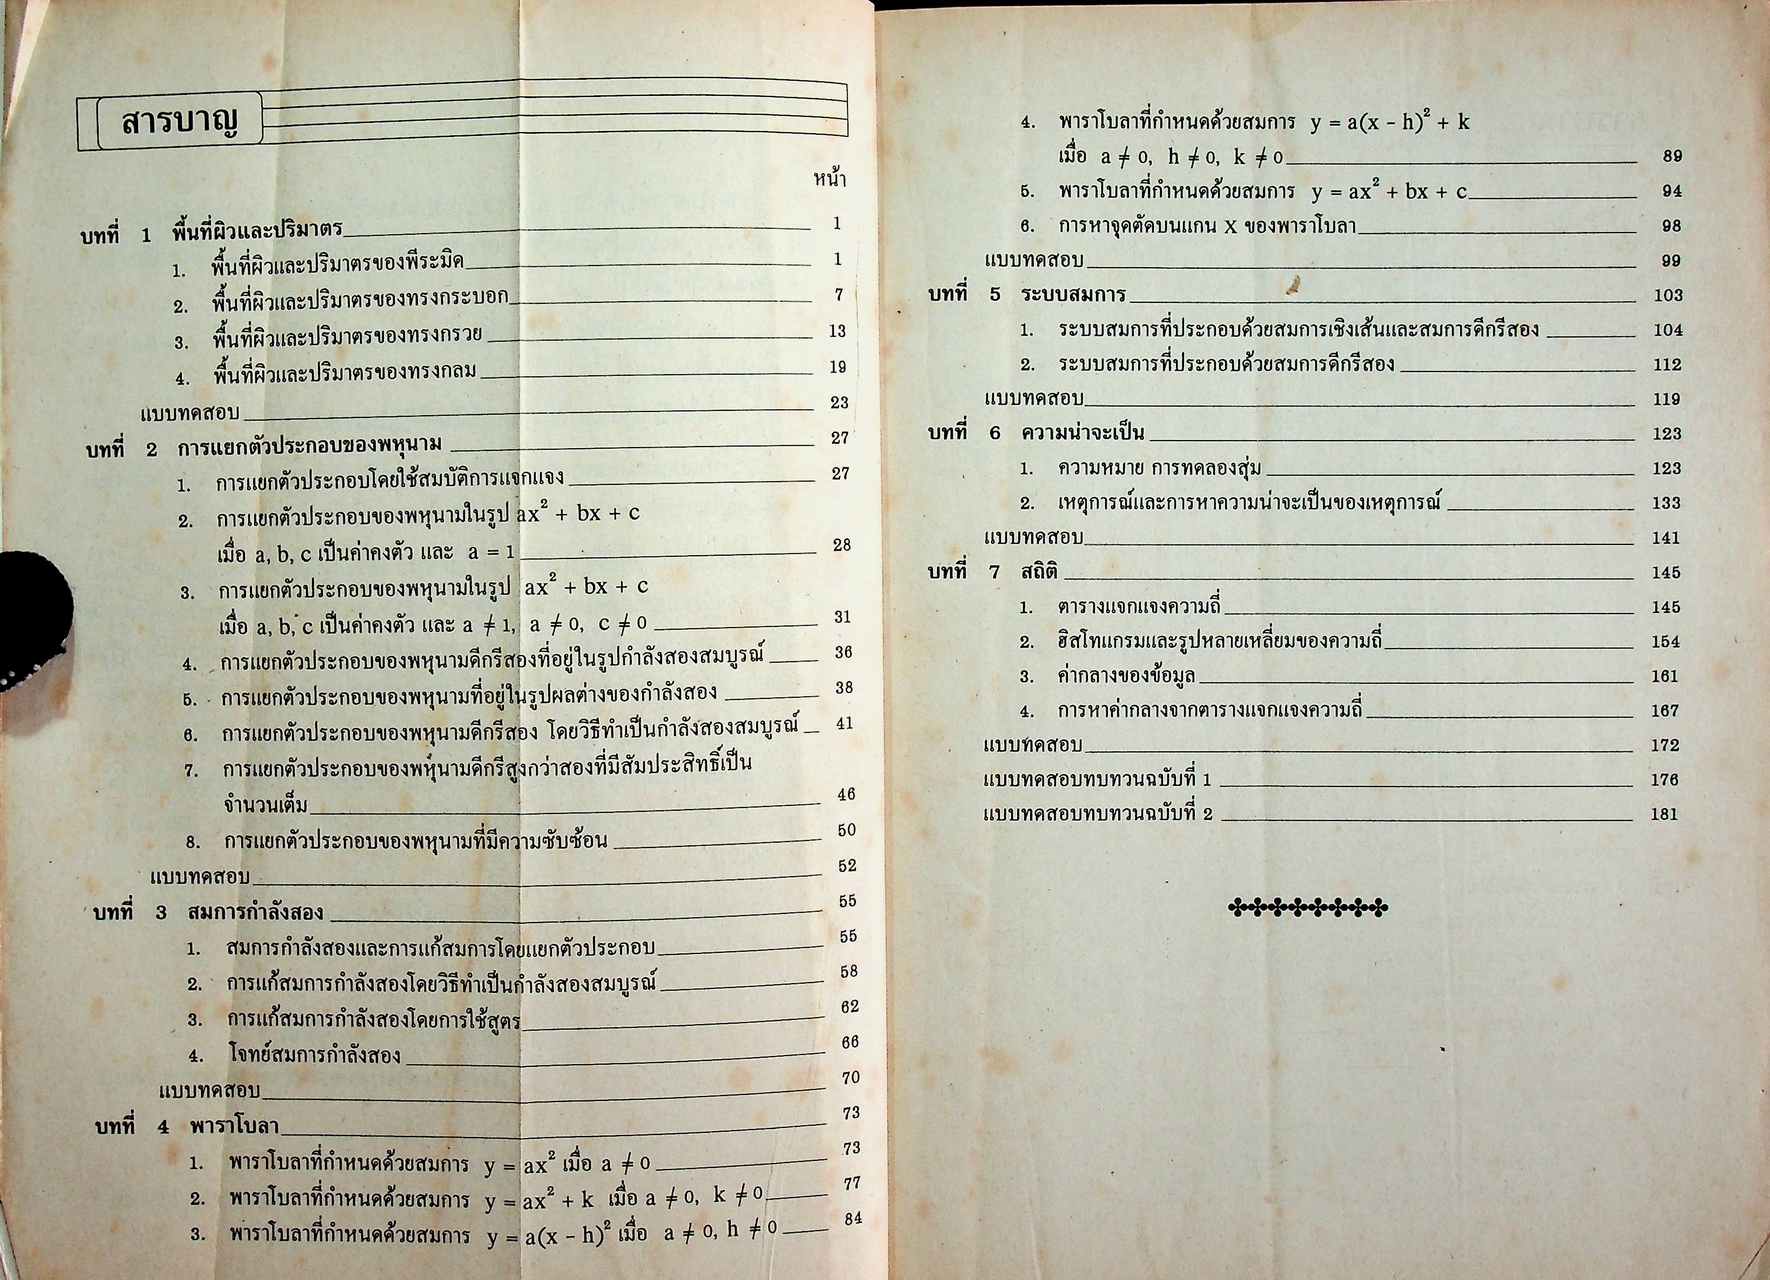 สารบาญ
หน้า
บทที่ 1 พื้นที่ผิวและปริมาตร 1
1. พื้นที่ผิวและปริมาตรของพีระมิด 1
2. พื้นที่ผิวและปริมาตรของทรงกระบอก 7
3. พื้นที่ผิวและปริมาตรของทรงกรวย 13
4. พื้นที่ผิวและปริมาตรของทรงกลม 19
แบบทดสอบ 23
บทที่ 2 การแยกตัวประกอบของพหุนาม 27
1. การแยกตัวประกอบโดยใช้สมบัติการแจกแจง 27
2. การแยกตัวประกอบของพหุนามในรูป ax² + bx + c
เมื่อ a, b, c เป็นค่าคงตัว และ a = 1 28
3. การแยกตัวประกอบของพหุนามในรูป ax² + bx + c
เมื่อ a, b, c เป็นค่าคงตัว และ a ≠ 1, a ≠ 0, c ≠ 0 31
4. การแยกตัวประกอบของพหุนามดีกรีสองที่อยู่ในรูปกำลังสองสมบูรณ์ 36
5. การแยกตัวประกอบของพหุนามที่อยู่ในรูปผลต่างของกำลังสอง 38
6. การแยกตัวประกอบของพหุนามดีกรีสอง โดยวิธีทำเป็นกำลังสองสมบูรณ์ 41
7. การแยกตัวประกอบของพหุนามดีกรีสูงกว่าสองที่มีสัมประสิทธิ์เป็น
จำนวนเต็ม 46
8. การแยกตัวประกอบของพหุนามที่มีความซับซ้อน 50
แบบทดสอบ 52
บทที่ 3 สมการกำลังสอง 55
1. สมการกำลังสองและการแก้สมการโดยแยกตัวประกอบ 55
2. การแก้สมการกำลังสองโดยวิธีทำเป็นกำลังสองสมบูรณ์ 58
3. การแก้สมการกำลังสองโดยการใช้สูตร 62
4. โจทย์สมการกำลังสอง 66
แบบทดสอบ 70
บทที่ 4 พาราโบลา 73
1. พาราโบลาที่กำหนดด้วยสมการ y = ax² เมื่อ a ≠ 0 73
2. พาราโบลาที่กำหนดด้วยสมการ y = ax² + k เมื่อ a ≠ 0, k ≠ 0 77
3. พาราโบลาที่กำหนดด้วยสมการ y = a(x - h)² เมื่อ a ≠ 0, h ≠ 0 84
4. พาราโบลาที่กำหนดด้วยสมการ y = a(x - h)² + k
เมื่อ a ≠ 0, h ≠ 0, k ≠ 0 89
5. พาราโบลาที่กำหนดด้วยสมการ y = ax² + bx + c 94
6. การหาจุดตัดบนแกน X ของพาราโบลา 98
แบบทดสอบ 99
บทที่ 5 ระบบสมการ 103
1. ระบบสมการที่ประกอบด้วยสมการเชิงเส้นและสมการดีกรีสอง 104
2. ระบบสมการที่ประกอบด้วยสมการดีกรีสอง 112
แบบทดสอบ 119
บทที่ 6 ความน่าจะเป็น 123
1. ความหมาย การทดลองสุ่ม 123
2. เหตุการณ์และการหาความน่าจะเป็นของเหตุการณ์ 133
แบบทดสอบ 141
บทที่ 7 สถิติ 145
1. ตารางแจกแจงความถี่ 145
2. ฮิสโทแกรมและรูปหลายเหลี่ยมของความถี่ 154
3. ค่ากลางของข้อมูล 161
4. การหาค่ากลางจากตารางแจกแจงความถี่ 167
แบบทดสอบ 172
แบบทดสอบทบทวนฉบับที่ 1 176
แบบทดสอบทบทวนฉบับที่ 2 181